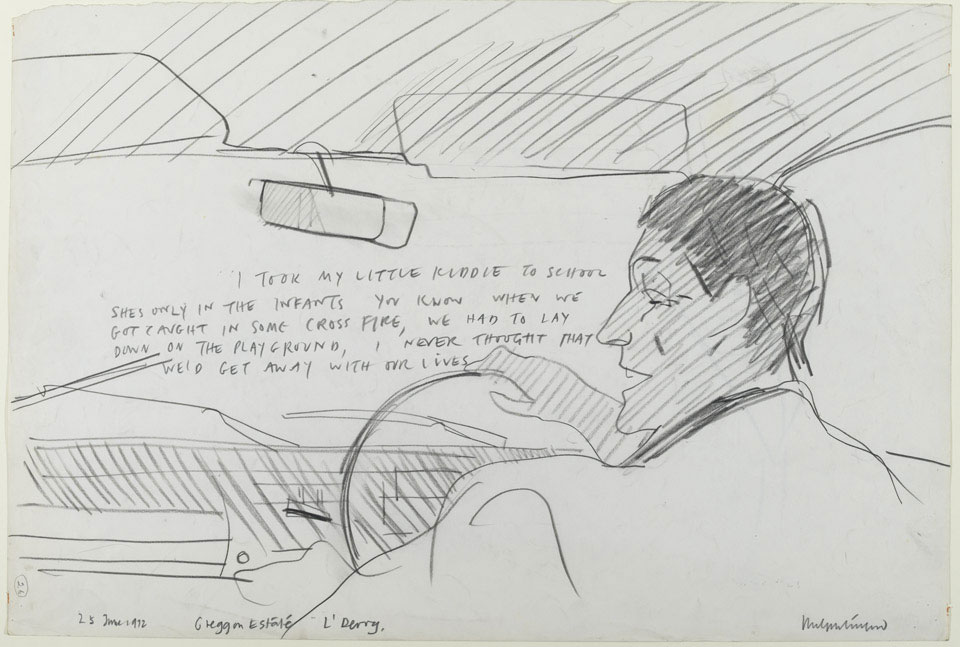 I TOOK MY LITTLE KIDDIE TO SCHOOL
SHES ONLY IN THE INFANTS YOU KNOW WHEN WE
GOT CAUGHT IN SOME CROSS FIRE, WE HAD TO LAY
DOWN ON THE PLAYGROUND, I NEVER THOUGHT THAT
WE'D GET AWAY WITH OUR LIVES
25 June 1972 Creggan Estate L'Derry.